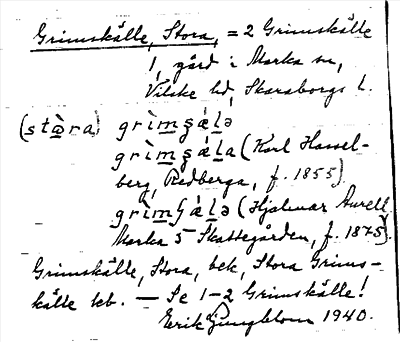 Grimskälle, Stora, = 2 Grimskälle
1, gård i Marka sn,
Vilske hd, Skaraborgs l.
(stɷ̀ra) grìmʂǽlə
grìmʂǽla (Karl Hassel-
berg, Redberga, f. 1855)
– grìmʂǽlə (Hjalmar Aurell
Marka 5 Skattegården, f. 1875).
Grimskälle, Stora, bek., Stora Grims-
källe kb. — Se 1–2 Grimskälle!
Erik Ljungblom 1940.